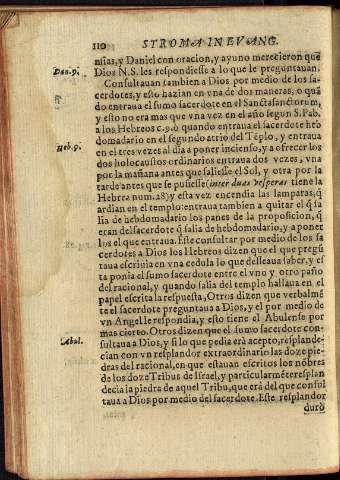 110 STROMA IN EVANG.
nñas, y Daniel con oracion, y ayuno merecieron que
Dan. 9. Dios N.S. les respondiesse a lo que le preguntauan.
Consultauan tambien a Dios por medio de los sa-
cerdotes, y esto hazian en vna de dos maneras, o quã
do entraua el sumo sacerdote en el Sancta sanctorum,
y esto no era mas que vna vez en el año segun S. Pab.
Heb. 9. a los Hebreos c.9. o quando entraua el sacerdote heb
domadario en el segundo atrio del Tẽplo, y entraua
en el tres vezes al dia a poner incienso, y a ofrecer los
dos holocaustos ordinarios entraua dos vezes, vna
por la mañana antes que saliesse el Sol, y otra por la
tarde antes que se pusiesse (inter duas vesperas tiene la
Hebrea num. 28) y esta vez encendia las lamparas, q̃
ardian en el templo: entraua tambien a quitar el q̃ sa
lia de hebdomadario los panes de la proposicion, q̃
eran del sacerdote q̃ salia de hebdomadario, y a poner
los el que entraua. Este consultar por medio de los sa
cerdotes a Dios los Hebreos dizen que el que pregũ
taua escriuia en vna cedula lo que desseaua saber, y es
ta ponia el sumo sacerdote entre el vno y otro paño
del racional, y quando salia del templo hallaua en el
papel escrita la respuesta, Otros dizen que verbalmẽ
te el sacerdote preguntaua a Dios, y el por medio de
vn Angel le respondia, y esto tiene el Abulense por
mas cierto. Otros dizen que el sumo sacerdote con-
Abul. sultaua a Dios, y si lo que pedia era acepto, resplande-
cian con vn resplandor extraordinario las doze pie-
dras del racional, en que estauan escritos los nõbres
de los doze Tribus de Israel, y particularmẽte resplan
decia la piedra de aquel Tribu, que era del que consul
taua a Dios por medio del sacerdote. Este resplandor
durò